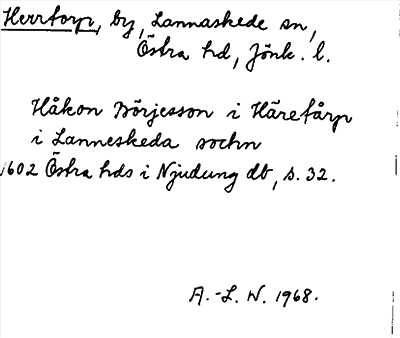 Herrtorp, by, Lannaskede sn,
Östra hd, Jönk. l.
Håkon Börjesson i Häretårp
i Lanneskeda sochn
1602 Östra hds i Njudung db, s. 32.
A.-L. W. 1968.